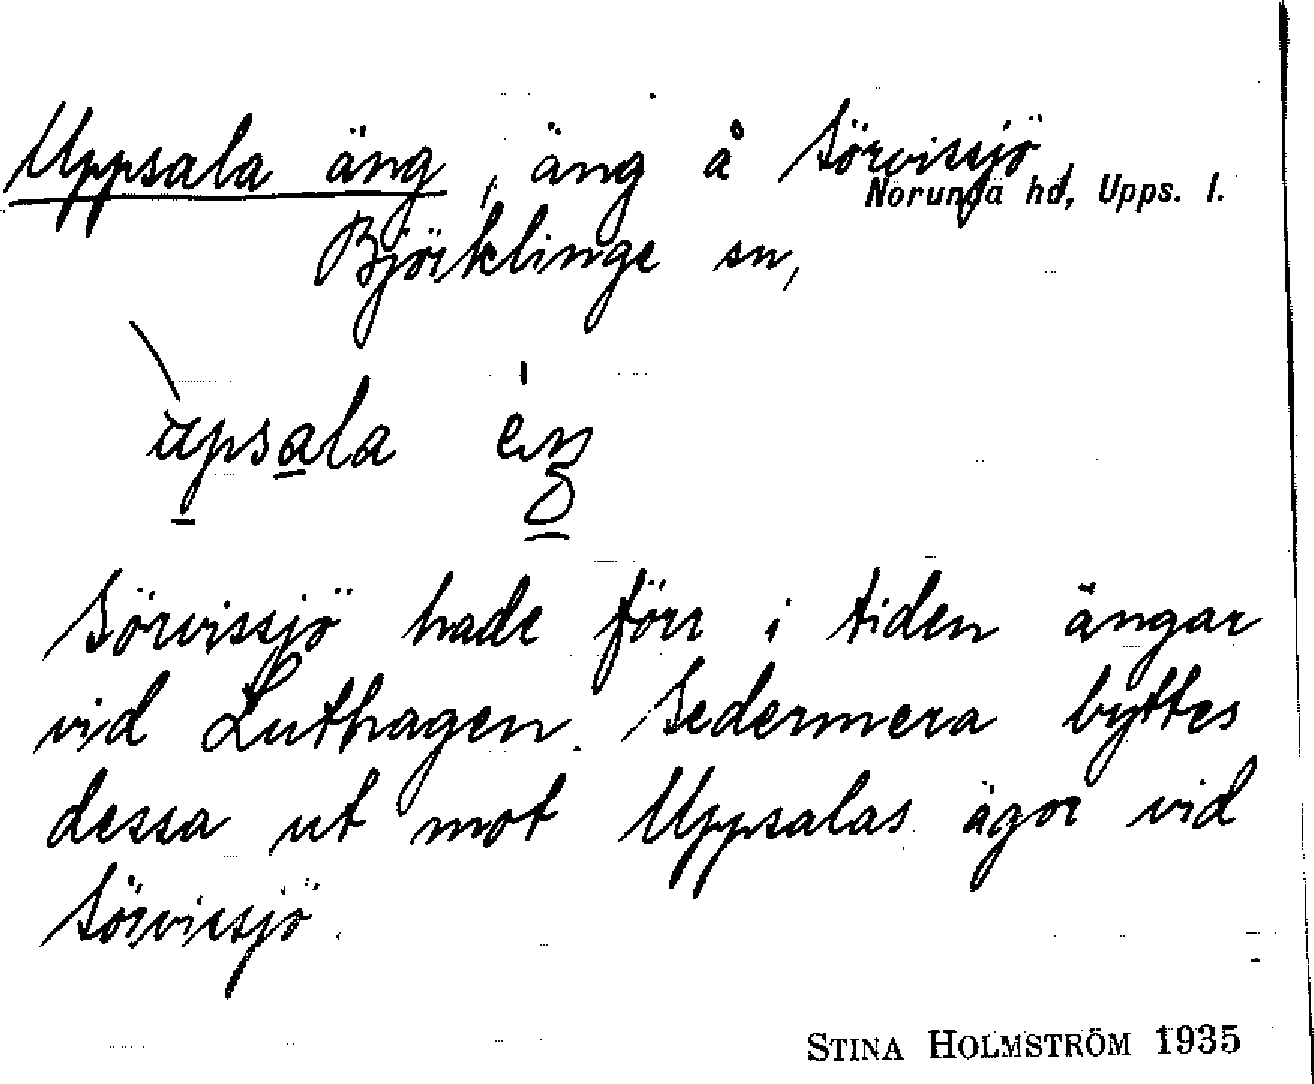 Uppsala äng, äng å Sörvissjö,
Norunda hd, Upps. l.
Björklinge sn,
Sörvissjö hade förr i tiden ängar
vid Luthagen. Sedermera byttes
dessa ut mot Uppsalas ägor vid
Sörvissjö.
STINA HOLMSTRÖM 1935